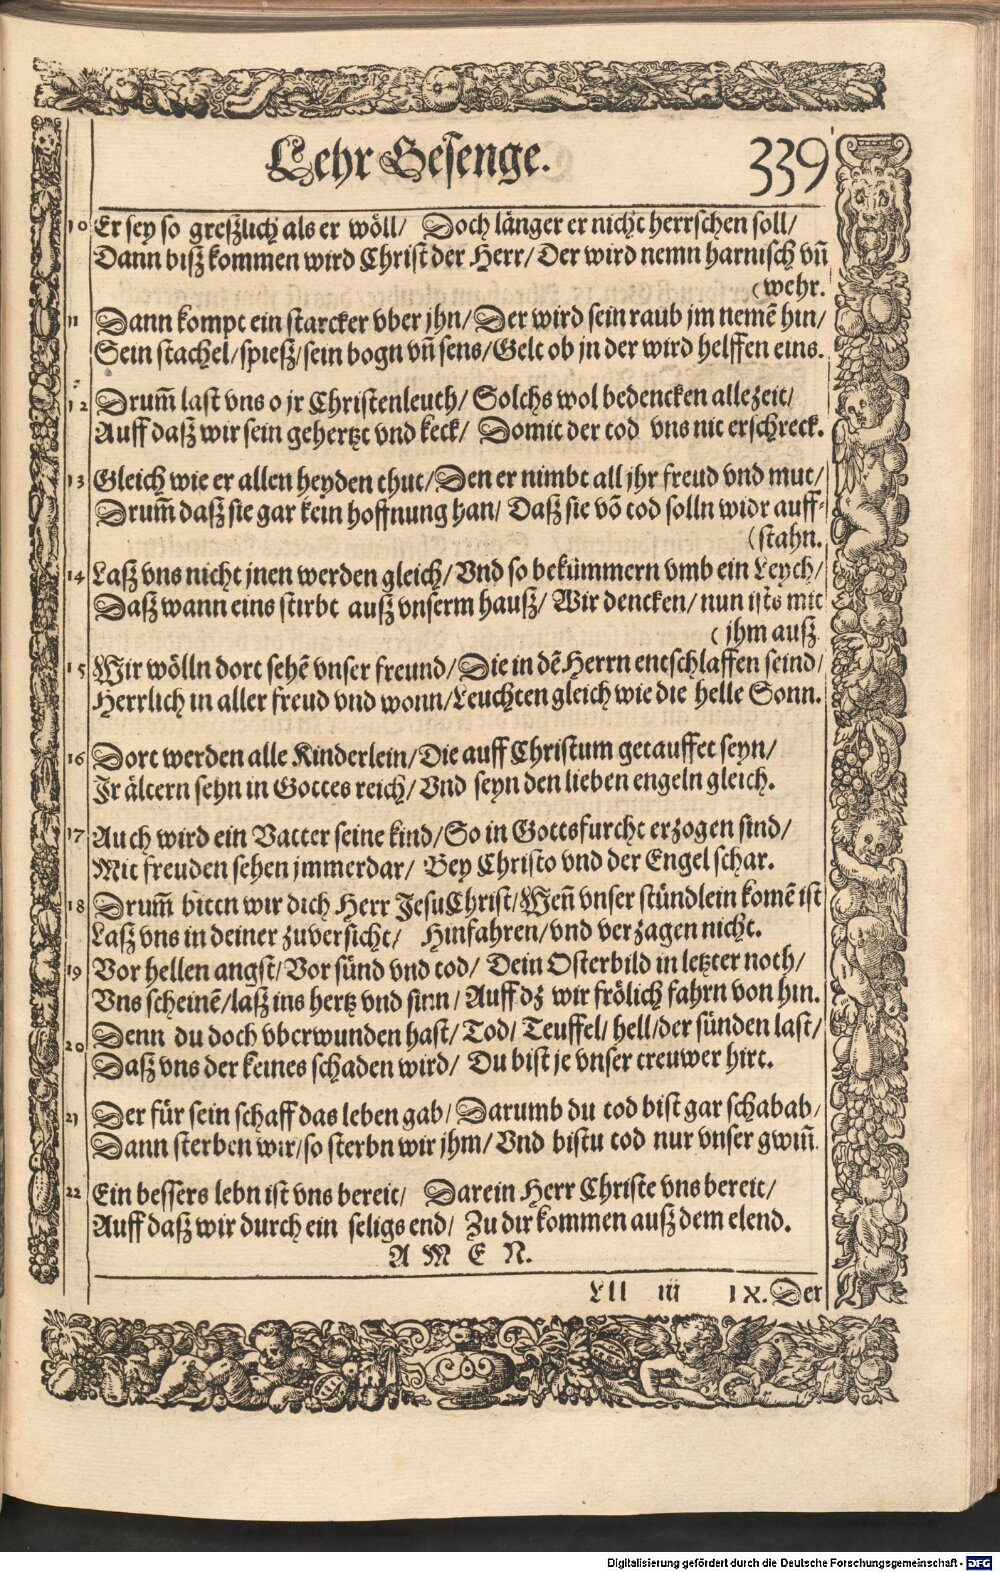 Lehr Gesenge. 339
10 Er sey so greszlich als er wöll/ Doch länger er nicht herrschen soll/
Dann bisz kommen wird Christ der Herr/ Der wird nemn harnisch vn̄
(wehr.
11 Dann kompt ein starcker vber jhn/ Der wird sein raub jm nemē hin/
Sein stachel/ spiesz/ sein bogn vn̄ sens/ Gelt ob jn der wird helffen eins.
12 Drum̄ last vns o jr Christenleuth/ Solchs wol bedencken alle zeit/
Auff dasz wir sein gehertzt vnd keck/ Domit der tod vns nit erschreck.
13 Gleich wie er allen heyden thut/ Den er nimbt all jhr freud vnd mut/
Drum̄ dasz sie gar kein hoffnung han/ Dasz sie vō tod solln widr auff-
(stahn.
14 Lasz vns nicht jnen werden gleich/ Vnd so bekümmern vmb ein Leych/
Dasz wann eins stirbt ausz vnserm hausz/ Wir dencken/ nun ists mit
(jhm ausz.
15 Wir wölln dort sehē vnser freund/ Die in dē Herrn entschlaffen seind/
Herrlich in aller freud vnd wonn/ Leuchten gleich wie die helle Sonn.
16 Dort werden alle Kinderlein/ Die auff Christum getauffet seyn/
Jr ältern sehn in Gottes reich/ Vnd seyn den lieben engeln gleich.
17 Auch wird ein Vatter seine kind/ So in Gottsfurcht erzogen sind/
Mit freuden sehen jmmerdar/ Bey Christo vnd der Engel schar.
18 Drum̄ bittn wir dich Herr Jesu Christ/ Wen̄ vnser stündlein komē ist
Lasz vns in deiner zuversicht/ Hinfahren/ vnd verzagen nicht.
19 Vor hellen angst/ Vor sünd vnd tod/ Dein Osterbild in letzter noth/
Vns scheinē/ lasz ins hertz vnd sinn/ Auff dz wir frölich fahrn von hin.
20 Denn du doch vberwunden hast/ Tod/ Teuffel/ hell/ der sünden last/
Dasz vns der keines schaden wird/ Du bist je vnser treuwer hirt.
21 Der für sein schaff das leben gab/ Darumb du tod bist gar schabab/
Dann sterben wir/ so sterbn wir jhm/ Vnd bistu tod nur vnser gwin̄.
22 Ein bessers lebn ist vns bereit/ Darein Herr Christe vns bereit/
Auff dasz wir durch ein seligs end/ Zu dir kommen ausz dem elend.
A M E N.
Lll iii IX. Der
Digitalisierung gefördert durch die Deutsche Forschungsgemeinschaft - DFG